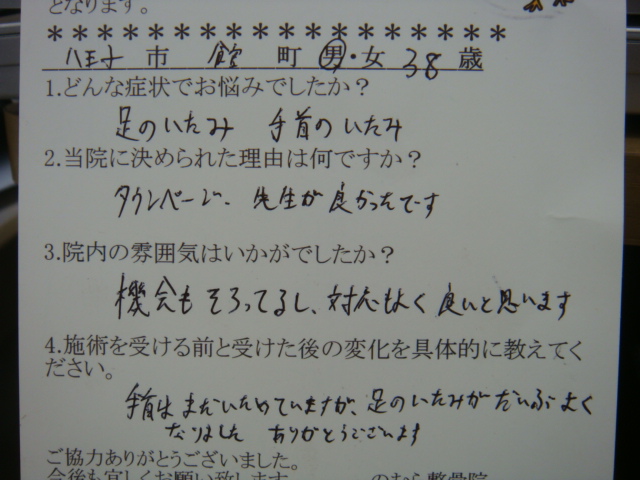 となります。
＊＊＊＊＊＊＊＊＊＊＊＊＊＊＊＊＊＊＊
八王子 市 館 町 男・女 38 歳
1.どんな症状でお悩みでしたか？
足のいたみ 手首のいたみ
2.当院に決められた理由は何ですか？
タウンページ、先生が良かったです
3.院内の雰囲気はいかがでしたか？
機会もそろってるし、対応もよく良いと思います
4.施術を受ける前と受けた後の変化を具体的に教えてく
ださい。
手首はまだいためていますが、足のいたみがだいぶよく
なりました ありがとうございます
ご協力ありがとうございました。
今後も宜しくお願い致します のむら整骨院